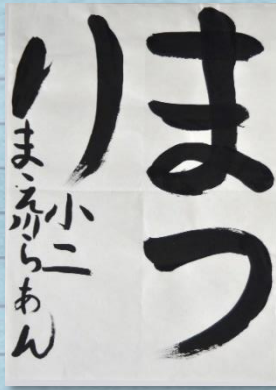 まつ
り
小二
まえ川らあん